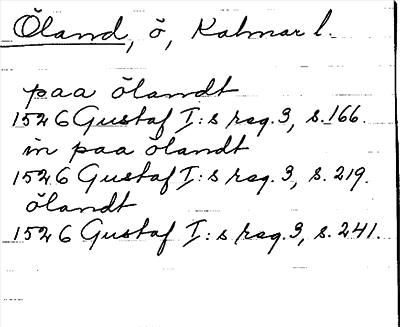 Öland, ö, Kalmar l.
paa ölandt
1526 Gustaf I:s reg. 3, s. 166.
in paa ölandt
1526 Gustaf I:s reg. 3, s. 219.
ölandt
1526 Gustaf I:s reg. 3, s. 241.